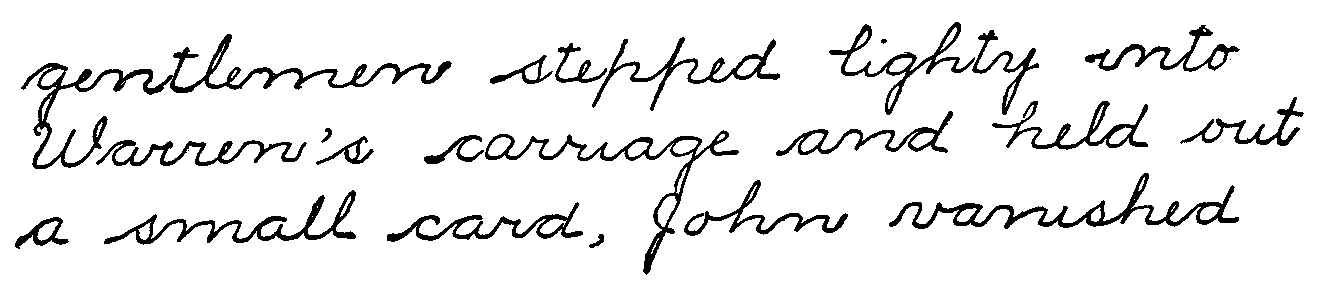 gentlemen stepped lighty into
Warren's carriage and held out
a small card, John vanished